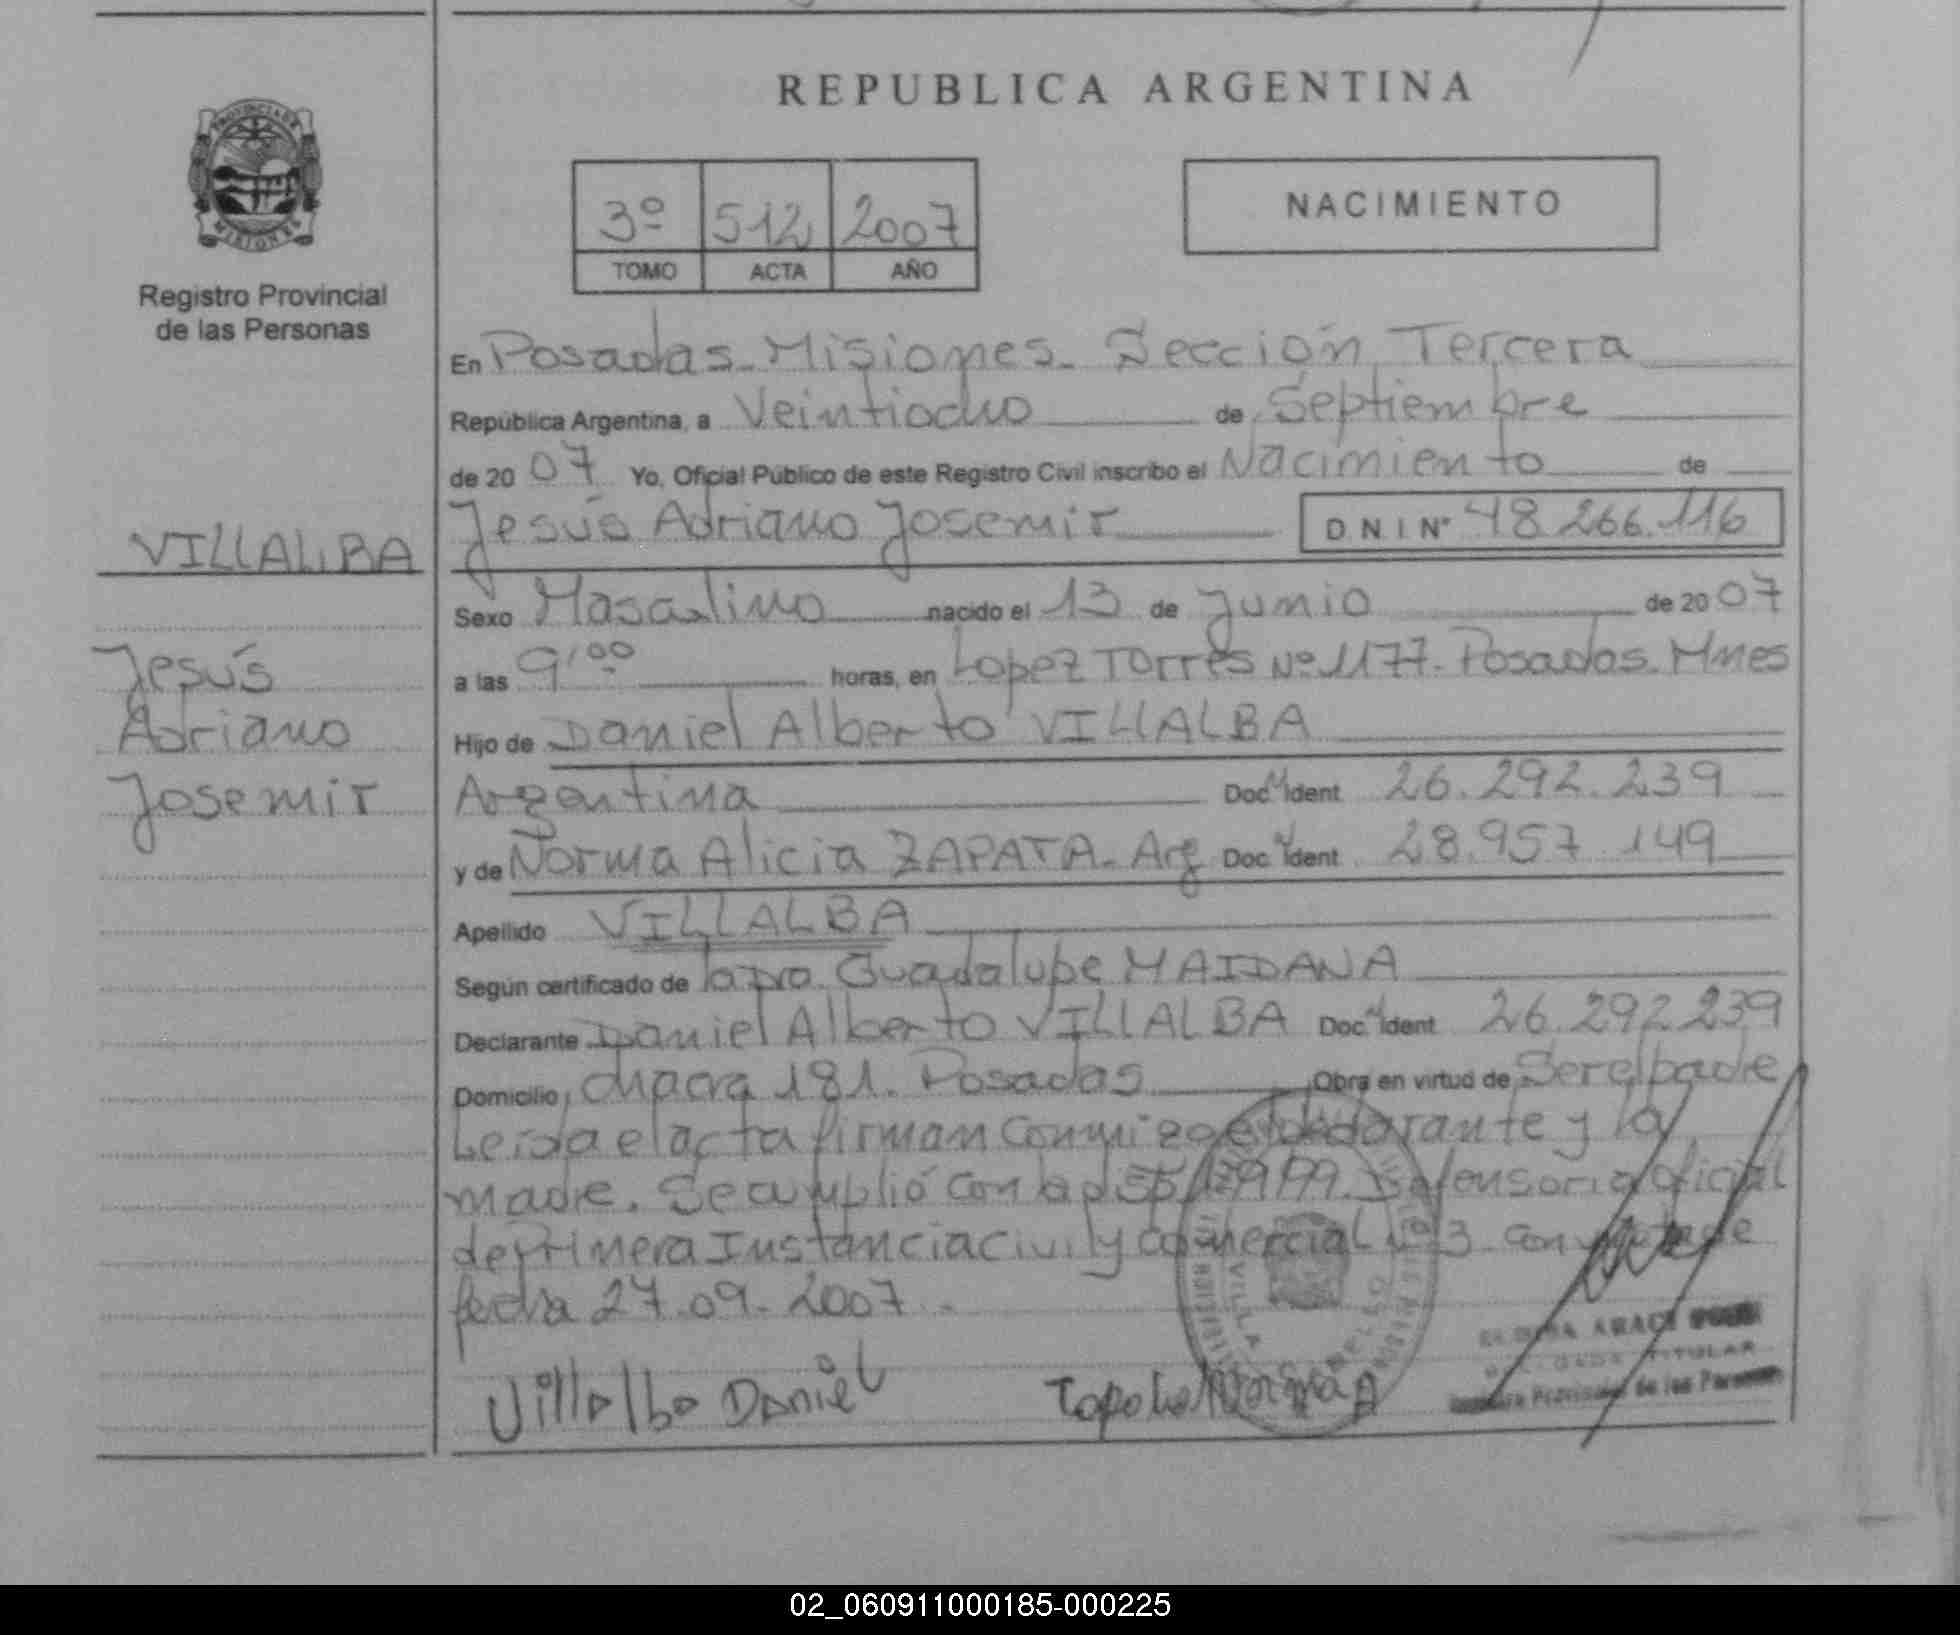 REPUBLICA ARGENTINA
PROVINCIA DE
MISIONES
Registro Provincial
de las Personas
3º 512 2007
TOMO ACTA AÑO
NACIMIENTO
En Posadas - Misiones - Sección Tercera
República Argentina, a Veintiocho de Septiembre
de 20 07 Yo, Oficial Público de este Registro Civil inscribo el Nacimiento de
Jesús Adriano Josemir D.N.I Nº 48.266.116
VILLALBA
Jesús
Adriano
Josemir
Sexo Masculino nacido el 13 de Junio de 20 07
a las 9'00 horas, en Lopez Torres Nº 1177. Posadas. Mnes
Hijo de Daniel Alberto VILLALBA
Argentina Doc Ident 26.292.239
y de Norma Alicia ZAPATA - Arg Doc Ident 28.957.149
Apellido VILLALBA
Según certificado de la Dra. Guadalupe MAIDANA
Declarante Daniel Alberto VILLALBA Doc Ident 26.292.239
Domicilio chacra 181. Posadas Obra en virtud de Ser el padre
Leída el acta firman conmigo el declarante y la
madre. Se cumplió con la Defensoria Oficial
de Primera Instancia Civil y Comercial Nº 3 con de
fecha 27.09.2007
Villalba Daniel
Norma A
TITULAR
de las Personas
02_060911000185-000225